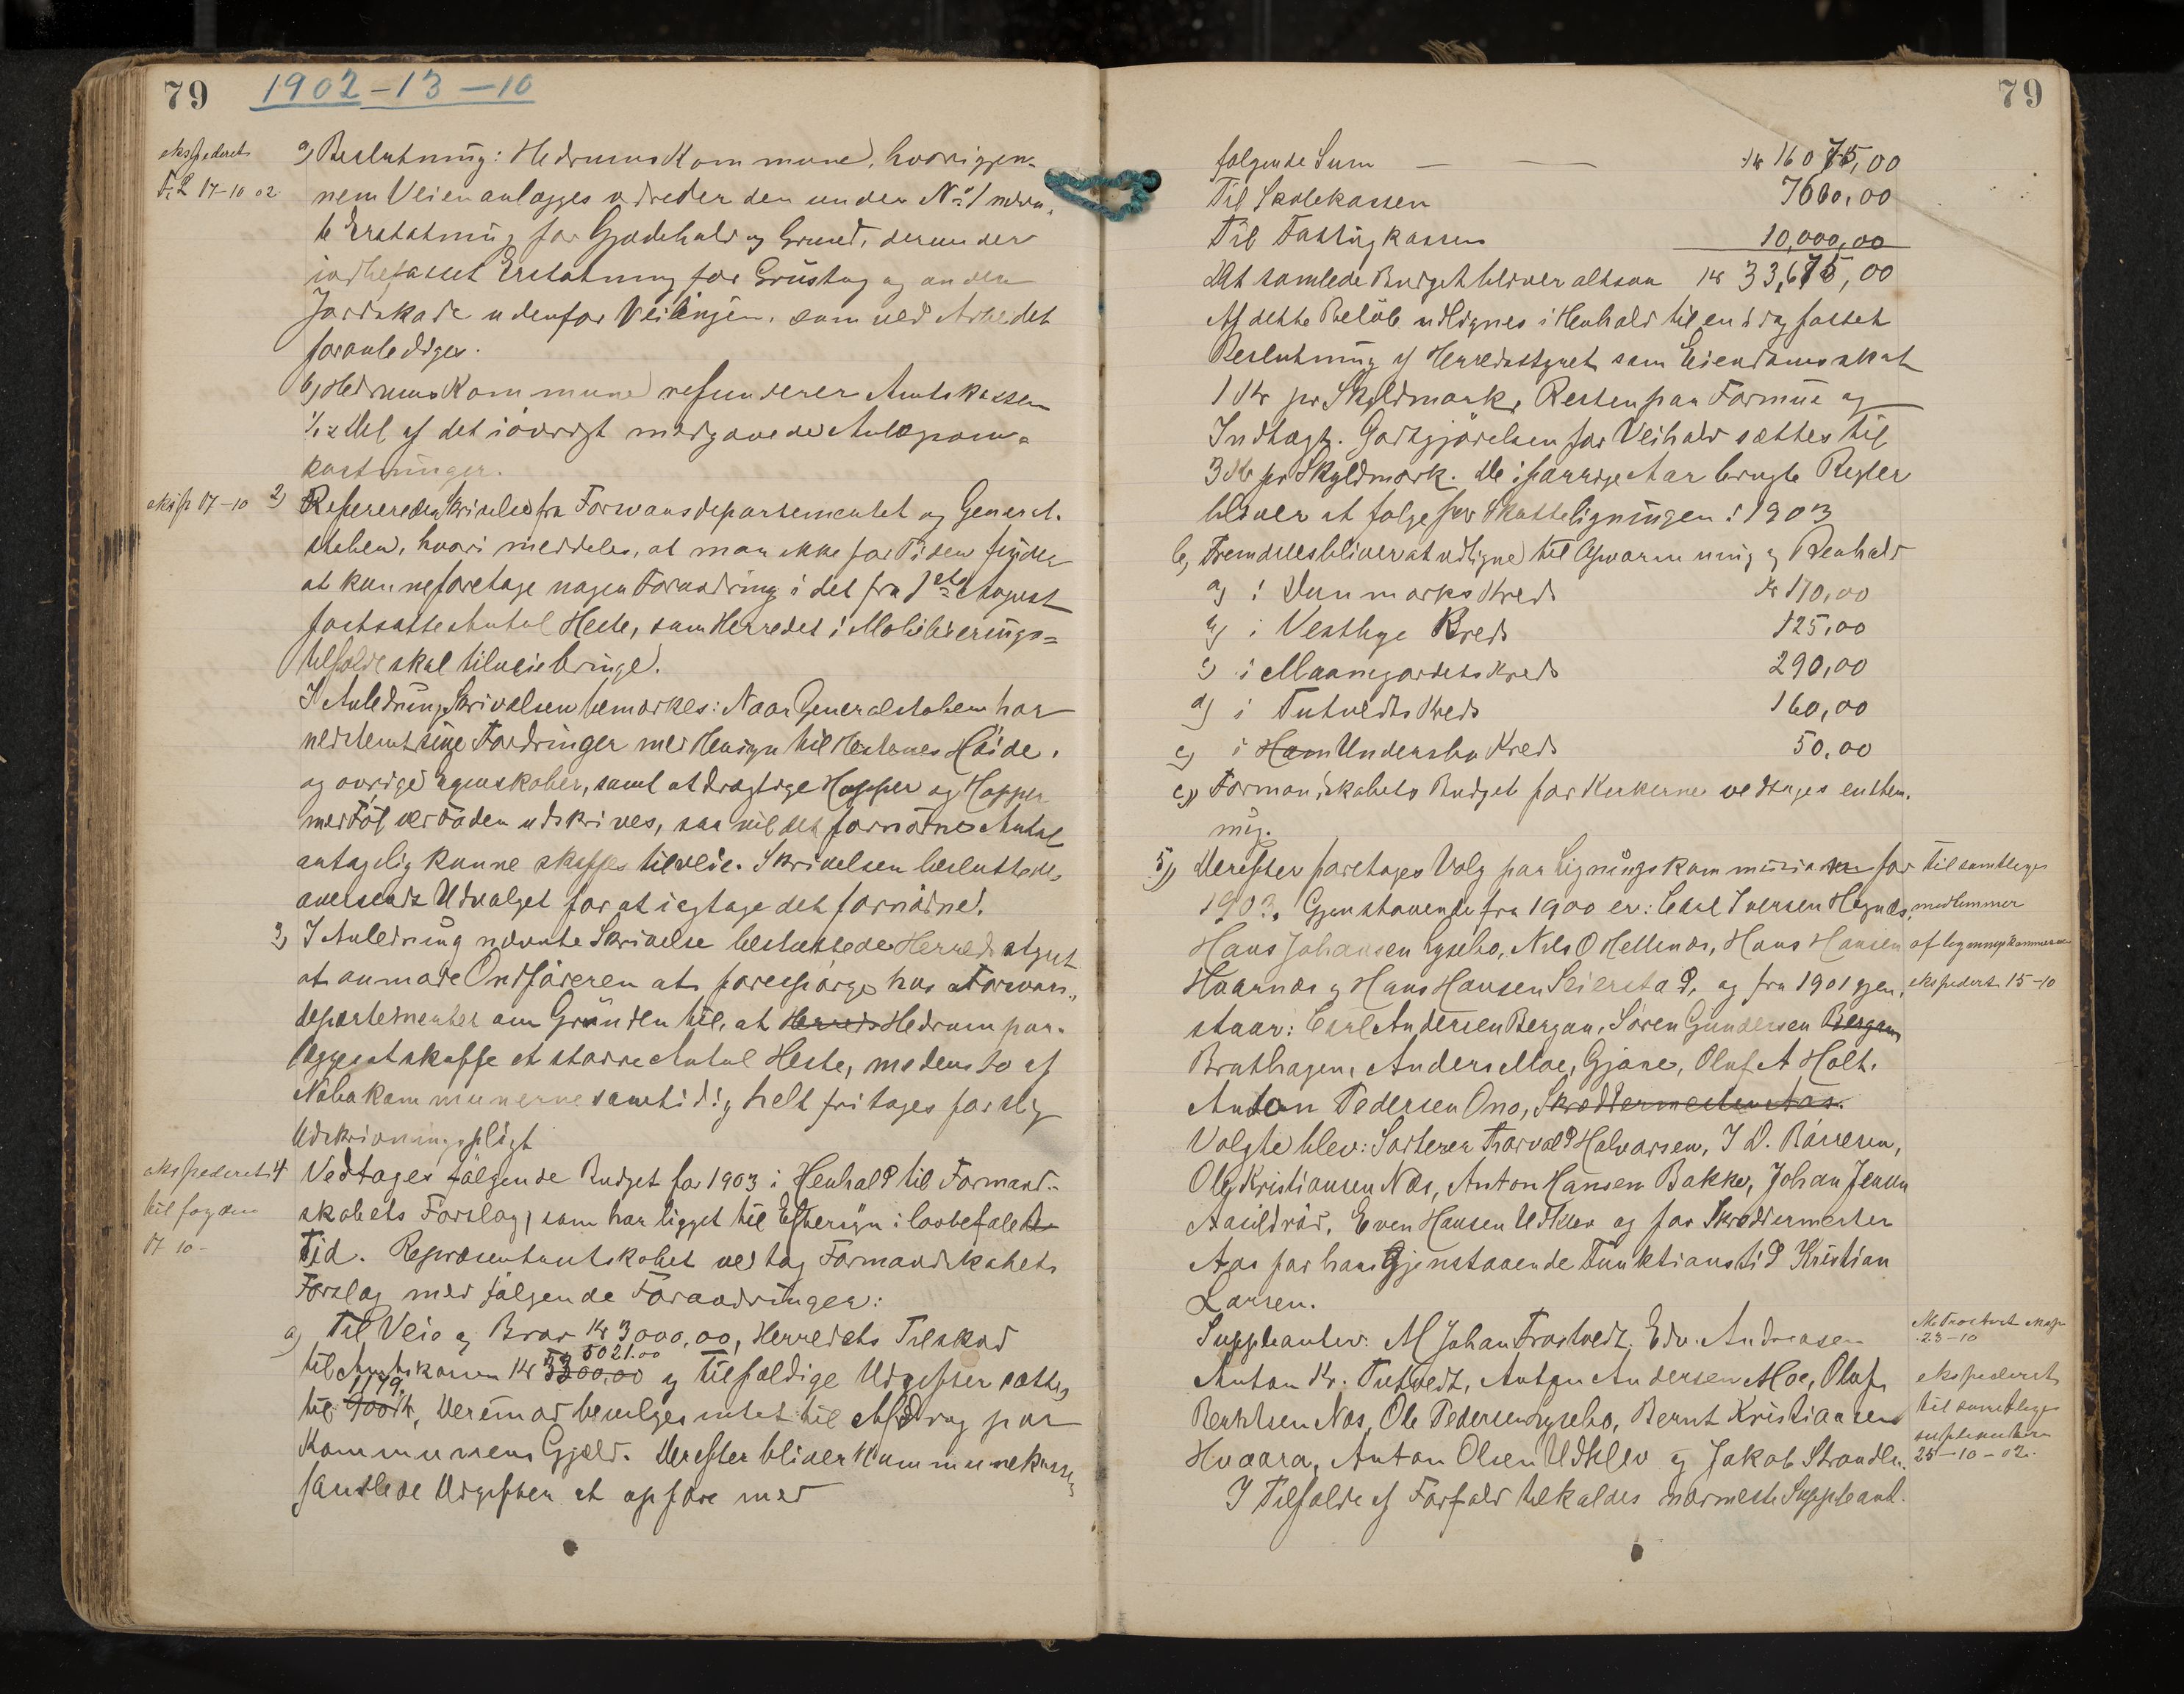 79 1902-13-10
ekspederet
17-10 02
a) Beslutning: Hedrums Kommune, hvorigjen-
nem Veien anlægges udreder den under No 1 nævn-
te Erstatning for Gjædehold og Grund, derunder
indbefattet Erstatning for Grustag og anden
Jordskade udenfor Veilinjen, som ved Arbeidet
foranlediges.
b) Hedrums Kommune refunderer Amtskassen
1/12 Del af det iövrigt medgaaede Anlægsom-
kostninger.
eksp 17-10
2) Refereredes Skrivelse fra Forsvarsdepartementet og General-
staben, hvori meddeles, at man ikke for Tiden finder
at kunne foretage nogen Forandring i det fra 1ste August
fastsatte Antal Heste, som Herredet i Mobiliserings-
tilfælde skal tilveiebringe.
I Anledning Skrivelsen bemærkes: Naar Generalstaben har
nedstemt sine Fordringer med Hensyn til Hestenes Höide,
og övrige egenskaber, samt at drægtige Hopper og Hopper
med Föl ver Foden udskrives, saa vil det fornödne Antal
antagelig kunne skaffes tilveie. Skrivelsen besluttedes
oversendt Udvalget for at iagtage det fornödne.
3) I Anledning nævnte Skrivelse besluttede Herredsstyret
at anmode Ordföreren at forespörge hos Forsvars-
departementet om Grunden til, at Herreds Hedrum paa-
lægges at skaffe et större Antal Heste, medens to af
Nabokommunerne samtidig helt fritages for slig
Udskrivningspligt
ekspederet
til fogden
17 10-
4 Vedtages fölgende Budget for 1903 i Henhold til Formand-
skabets Forslag, som har ligget til Eftersyn i lovbefalet
Tid. Repræsentantskabet vedtog Formandskabets
Forslag med fölgende Forandringer:
a) Til Veie og Broer Kr 3000,00, Herredets Tilskud
5021.00
til Amtskassen Kr 5300,00 og tilfældige Udgifter sættes
1179.
til 900 Kr, Derimod bevilges intet til Afdrag paa
Kommunens Gjæld. Derefter bliver Kommunekassens
samtlede Udgifter at opföre med
79
fölgende Sum Kr 16075,00
Til Skolekassen 7600,00
Til Fattigkassen 10,000,00
Det samlede Budget bliver altsaa Kr 33,675,00
Af dette Belöb udlignes i Henhold til en idag fattet
Beslutning af Herredsstyret som Eiendomsskat
1 Kr pr Skyldmark, Resten paa Formue og
Indtægt. Godtgjörelsen for Veihold sættes til
3 Kr pr Skyldmark. De i forrige Aar brugte Regler
bliver at fölge ved Skatteligningen i 1903
b) Fremdeles bliver at udligne til Opvarmning og Renhold
a) i Danmarks Kreds Kr 170,00
b) i Vestbye Kreds 125,00
c) i Kreds 290,00
d) i Tutvedts Kreds 160,00
e) i Ham Undersbo Kreds 50,00
c) Formandskabets Budget for Kirkerne vedtages enstem-
mig.
5) Derefter foretages Valg paa Ligningskommission for
1903. Gjenstaaende fra 1900 er: Carl Iversen Hegnæs,
Hans Johansen Lysebo, Nils O Hellenæs, Hans Hansen
Haarnæs og Hans Hansen Seierstad, og fra 1901 gjen-
staar: Carl Andersen Bergan, Sören Gundersen Bergan
Brathagen, Anders Moe, Gjöne, Oluf A Holt,
Anton Pedersen Ono, Skræddermester Aas.
Til samtlige
medlemmer
af ligningskommissionen
ekspedert 15-10
Valgte blev: Sorterer Thorvald Halvorsen, I D. Bärresen,
Ole Kristiansen Næs, Anton Hansen Bakke, Johan Jensen
Aasildröd, Even Hansen Udklev og for Skræddermester
Aas for hans Gjenstaaende Funktionstid Kristian
Larsen.
Suppleanter: M Johan Trostvedt, Edv. Andreasen
Anton Kr. Tutvedt, Anton Andersen Moe, Oluf
Berntsen Næs, Ole Pedersen Lysebo, Bernt Kristiansen
Hvaara, Anton Olsen Udklev og Jakob Strandli.
I Tilfælde af Forfald tilkaldes nærmeste Suppleant.
M Trostvedt eksp
23-10
ekspederet
til samtlige
supleanter
25-10-02.